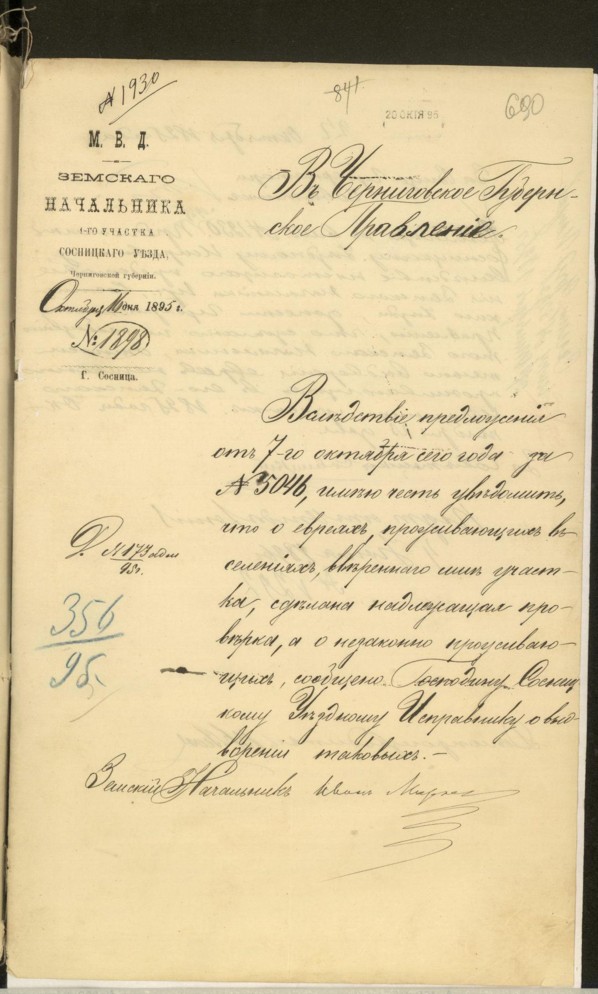 № 1930
841
20 ОКТЯ 95
690
М. В. Д.
ЗЕМСКАГО
НАЧАЛЬНИКА
1-ГО УЧАСТКА
СОСНИЦКАГО УѢЗДА,
Черниговской губерніи.
Октября дня 1895 г.
№ 1898
Г. Сосница.
Въ Черниговское Губерн-
ское Правленіе.
Вслѣдствіе предложенія
отъ 7-го октября сего года за
№ 5046, имѣю честь увѣдомить,
что о евреяхъ, проживающихъ въ
селеніяхъ, ввѣреннаго мнѣ участ-
ка, сдѣлана надлежащая про-
вѣрка, а о незаконно проживаю-
щихъ, сообщено Господину Сосниц
кому Уѣздному Исправнику о выд-
вореніи таковыхъ.-
Д. № 173
95 г.
356
95
Земскій Начальникъ Иванъ